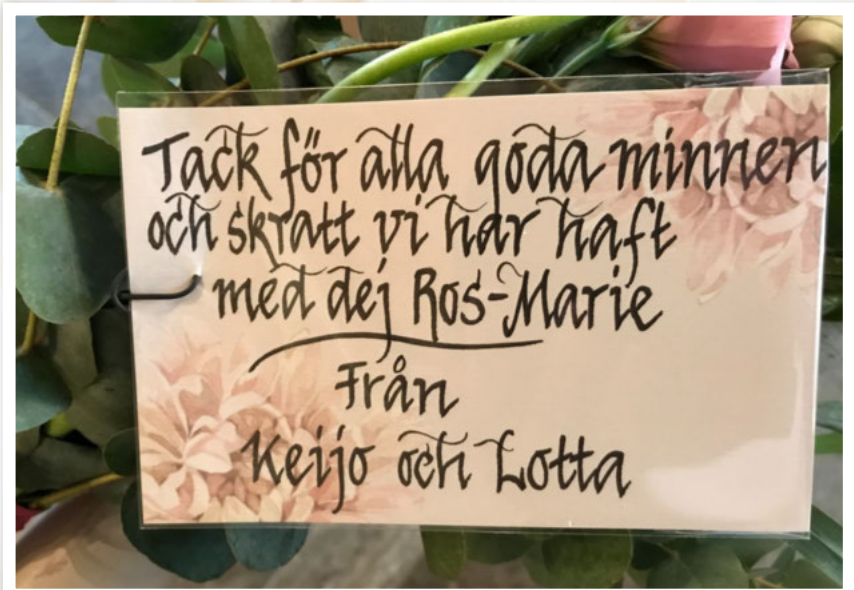 Tack för alla goda minnen
och skratt vi har haft
med dej Ros-Marie
Från
Keijo och Lotta